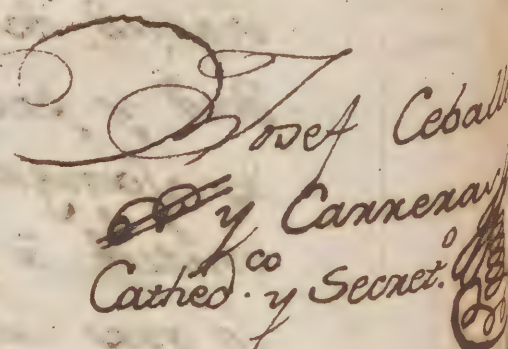 Josef Ceball
y Carrera
Cathed.co y Secret.o